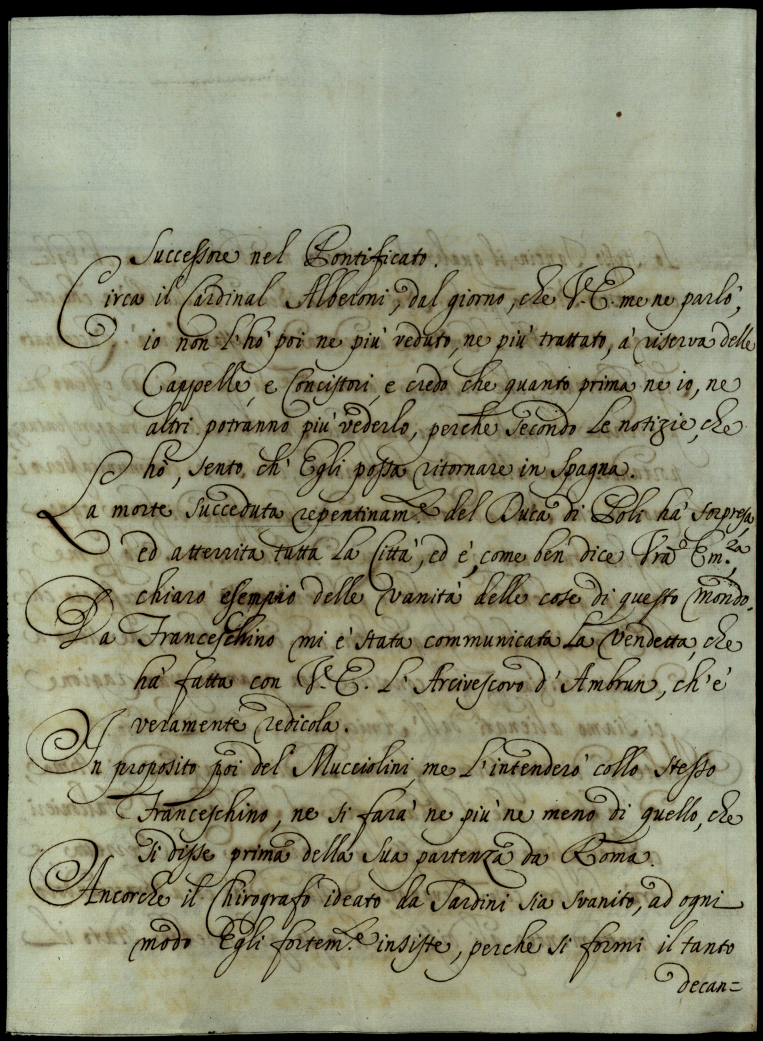 Successore nel Pontificato.
Circa il Cardinal Alberoni, dal giorno, che V. E. me ne parlò,
io non l'hò poi ne più veduto, ne più trattato, à riserva delle
Cappelle, e Concistori, e credo che quanto prima ne io, ne
altri potranno più vederlo, perche secondo le notizie, che
hò, sento, ch' Egli possa ritornare in Spagna.
La morte succeduta repentinam.e del Duca di Poli hà sorpresa,
ed atterrita tutta la Città, ed è, come ben dice Vra Em.za,
chiaro esempio delle vanità delle cose di questo Mondo.
Da Franceschino mi è stata communicata la vendetta, che
hà fatta con V. E. l'Arcivescovo d'Ambrun, ch'è
veramente redicola.
In proposito poi del Mucciolini, me l'intenderò collo stesso
Franceschino, ne si farà ne più ne meno di quello, che
si disse prima della sua partenza da Roma.
Ancorche il Chirografo ideato da Sardini sia svanito, ad ogni
modo Egli fortem.e insiste, perche si formi il tanto
decan=